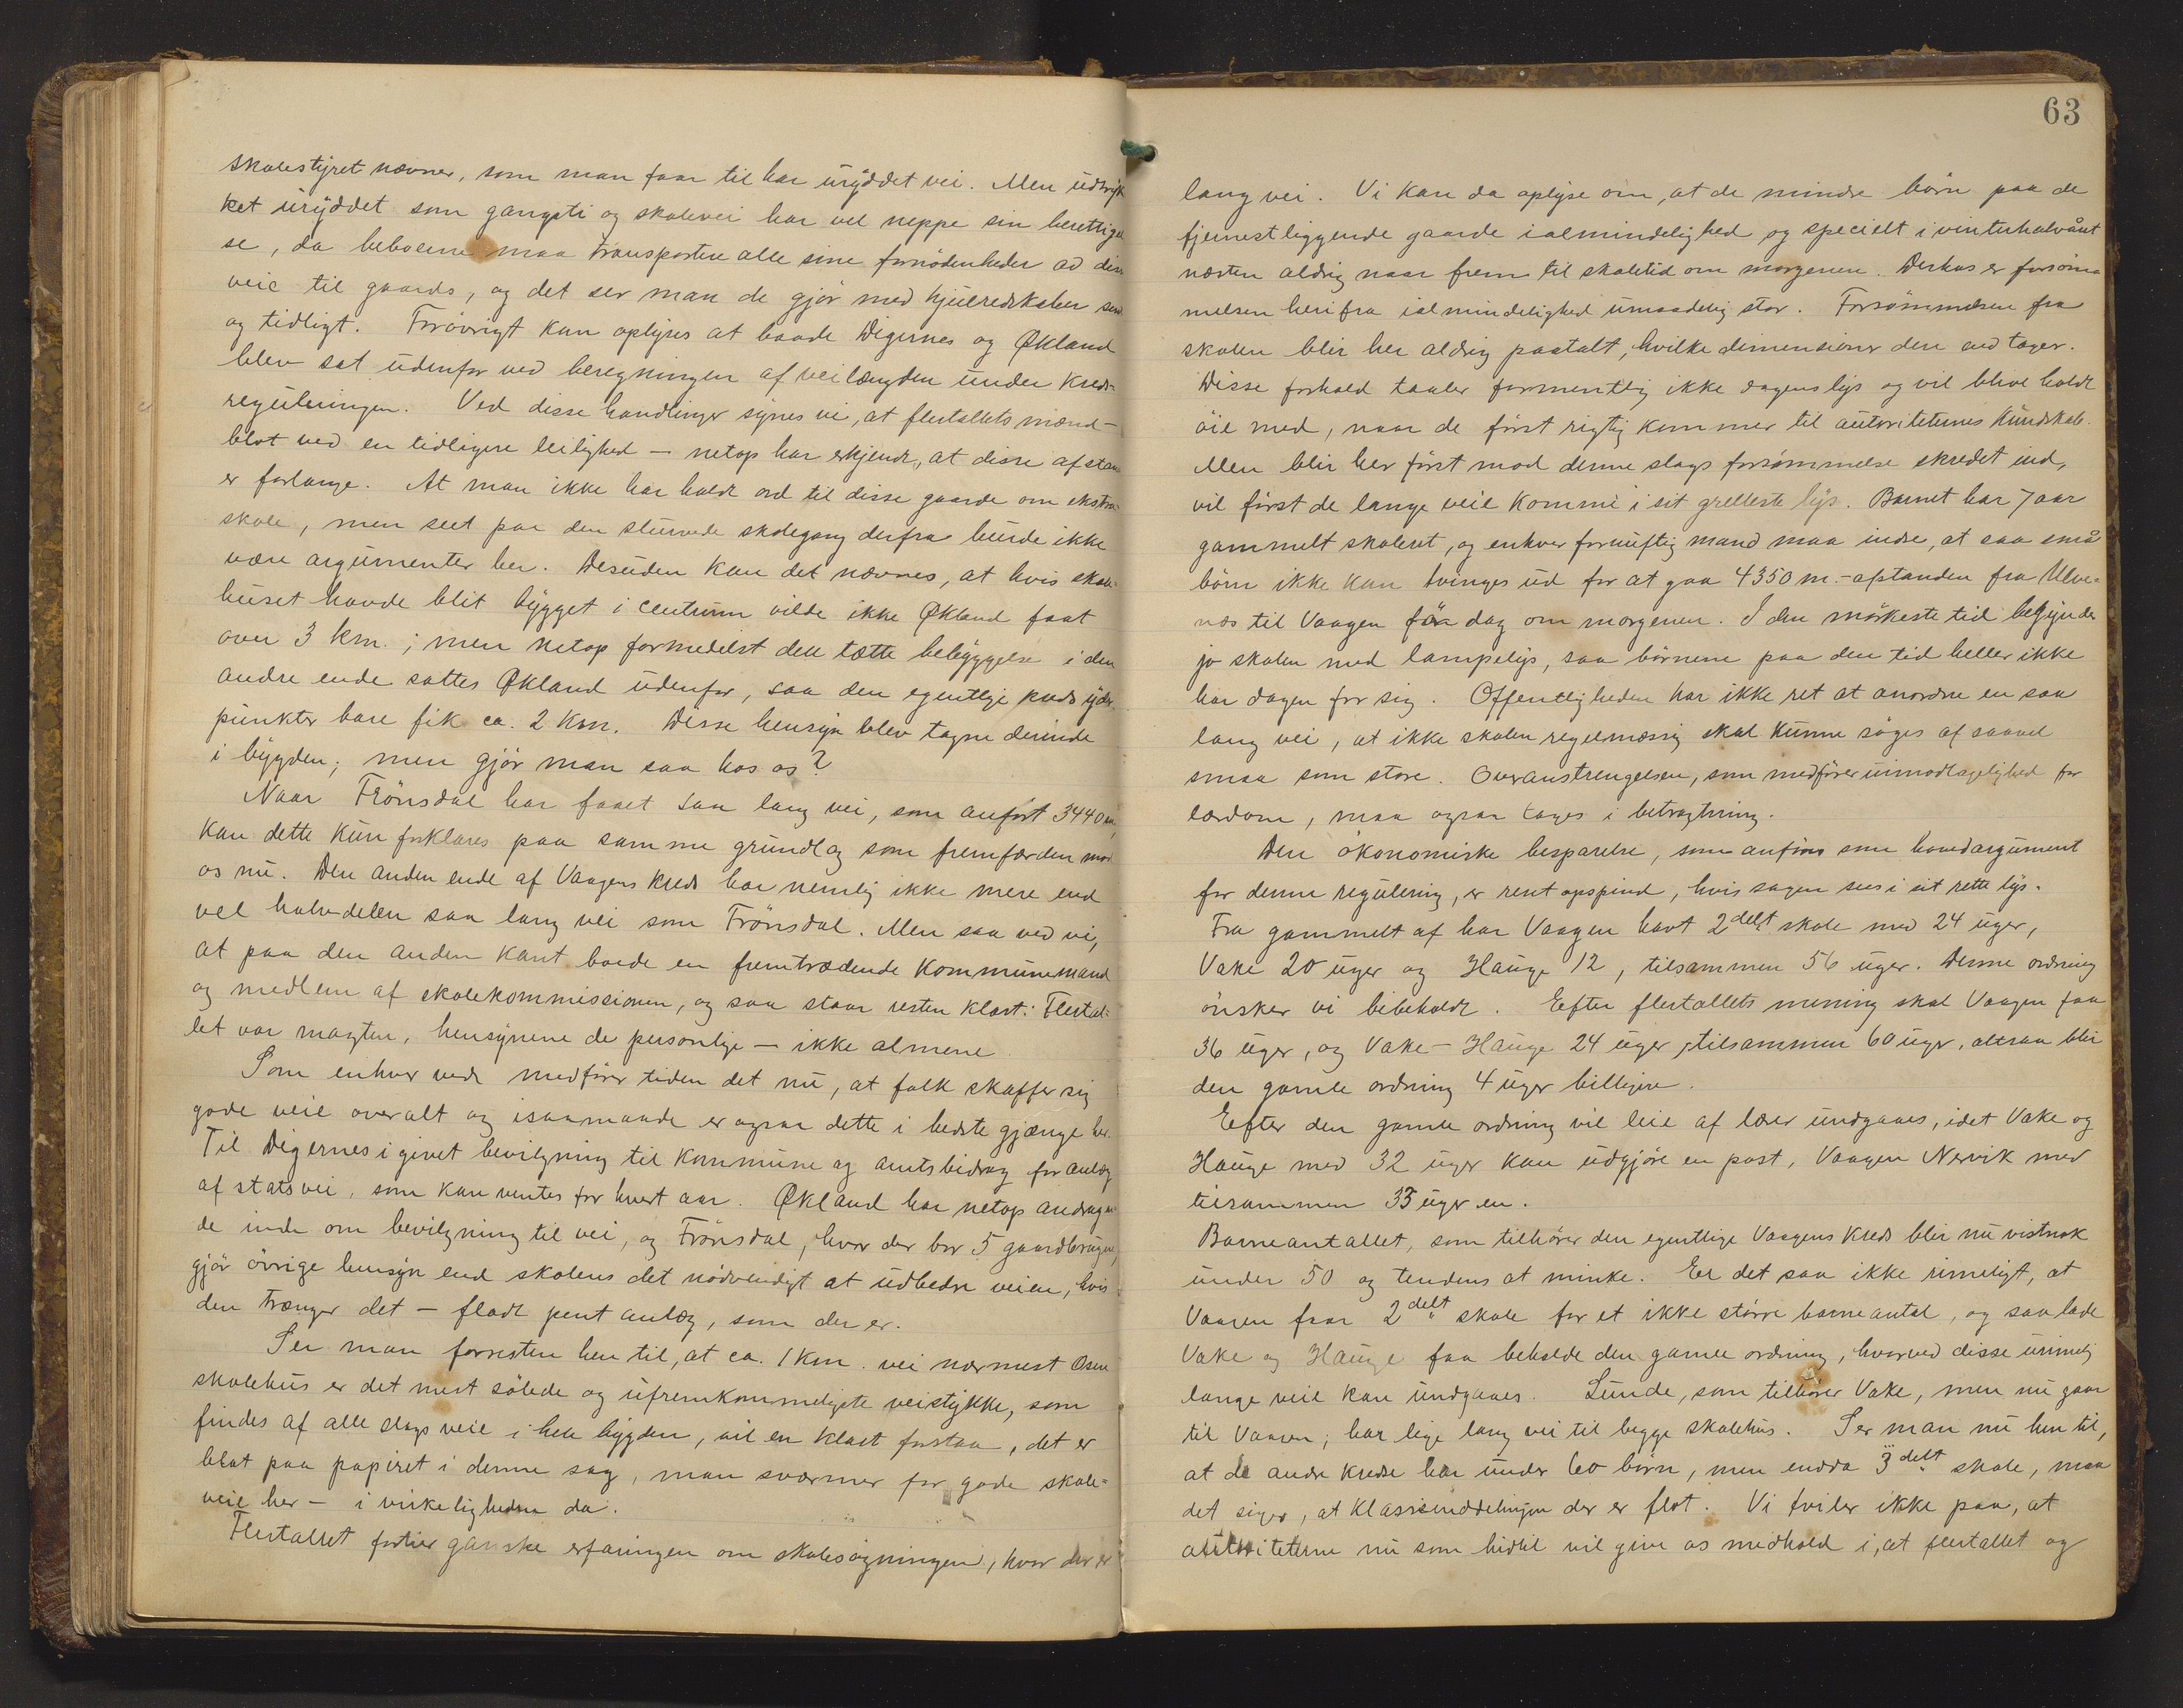 skolestyret nævner, som man faar til har uryddet vei. Men udtryk-
ket uryddet som gangsti og skolevei har vel neppe sin berettigel
se, da beboerne maa transportere alle sine fornödenheder ad disse
veie til gaards, og det ser man de gjör med hjulredskaber sent
og tidligt. Forövrigt kan oplyses at baade Digernes og Økland
blev sat udenfor ved beregningen af veilængden under kreds-
reguleringen. Ved disse handlinger synes vi, at flertallets mænd -
blot ved en tidligere leilighed - netop har erkjendt, at disse afstan
er forlange. At man ikke har holdt ord til disse gaarde om ekstra-
skole, men seet paa den sturvede skolegang derfra burde ikke
være argumenter her. Desuden kan det nævnes, at hvis skole-
huset havde blit bygget i centrum vilde ikke Økland faat
over 3 km.; men netop formedelst den tætte bebyggelse i den
andre ende sattes Økland udenfor, saa den egentlige kreds yder
punkter bare fik ca. 2 km. Disse hensyn blev tagne derinde
i bygden; men gjör man saa hos os?
Naar Frönsdal har faaet saa lang vei, som anfört 3440 m,
kan dette kun forklares paa samme grundlag som fremfærden mod
os nu. Den anden ende af Vaagens kreds har nemlig ikke mere end
vel halvdelen saa lang vei som Frönsdal. Men saa ved vi,
at paa den anden kant boede en fremtrædende kommunemand
og medlem af skolekommissionen, og saa staar resten klart: Flertal-
let var magten, hensynene de personlige - ikke almene.
Som enhver ved medförer tiden det nu, at folk skaffer sig
gode veie overalt og isaamaade er ogsaa dette i bedste gjænge her.
Til Digernes i givet bevilgning til kommune og amtsbidrag for anlæg
af statsvei, som kan ventes for hvert aar. Økland har netop andragen-
de inde om bevilgning til vei, og Frönsdal, hvor der bor 5 gaardbrugere,
gjör övrige hensyn end skolens det nödvendigt at udbedre veien, hvis
den trænger det - fladt pent anlæg, som der er.
Ser man forresten hen til, at ca. 1 km. vei nærmest Osen
skolehus er det mest sölede og ufremkommeligste veistykke, som
findes af alle slags veie i hele bygden, vil en klart forstaa, det er
blot paa papiret i denne sag, man sværmer for gode skole-
veie her - i virkeligheden da.
Flertallet fortier ganske erfaringen om skolesögningen, hvor der er
63
lang vei. Vi kan da oplyse om, at de mindre börn paa de
fjernestliggende gaarde ialmindelighed og specielt i vinterhalvåret
næsten aldrig naar frem til skoletid om morgenen. Derhos er forsöm-
melsen herifra ialmindelighed umaadelig stor. Forsömmelsen fra
skolen blir her aldrig paatalt, hvilke dimensioner den end tager.
Disse forhold taaler formentlig ikke dagens lys og vil blive holdt
öie med, naar de först rigtig kommer til autoriteternes kundskab.
Men blir her först mod denne slags forsömmelse skredet ind,
vil först de lange veie komme i sit grelleste lys. Barnet har 7 aar
gammelt skoleret, og enhver fornuftig mand maa indse, at saa små
börn ikke kan tvinges ud for at gaa 4350 m. - afstanden fra Ulve-
næs til Vaagen för dag om morgenen. I den mörkeste tid begynder
jo skolen med lampelys, saa börnene paa den tid heller ikke
har dagen for sig. Offentligheden har ikke ret at anordne en saa
lang vei, at ikke skolen regelmæssig skal kunne söges af saavel
smaa som store. Overanstrengelsen, som medförer uimodtagelighed for
lærdom, maa ogsaa tages i betragtning.
Den ökonomiske besparelse, som anföres som hovedargument
for denne regulering, er rent opspind, hvis sagen sees i sit rette lys.
Fra gammelt af har Vaagen havt 2delt skole med 24 uger,
Vake 20 uger og Hauge 12, tilsammen 56 uger. Denne ordning
önsker vi bibeholdt. Efter flertallets mening skal Vaagen faa
36 uger, og Vake - Hauge 24 uger, tilsammen 60 uger, altsaa blir
den gamle ordning 4 uger billigere.
Efter den gamle ordning vil leie af lærer undgaaes, idet Vake og
Hauge med 32 uger kan udgjöre en post, Vaagen Nervik med
tilsammen 35 uger en.
Barneantallet, som tilhörer den egentlige Vaagens kreds blir nu vistnok
under 50 og tendens at minke. Er det saa ikke rimeligt, at
Vaagen faar 2delt skole for et ikke större barneantal, og saa lade
Vake og Hauge faa beholde den gamle ordning, hvorved disse urimelig
lange veie kan undgaaes. Lunde, som tilhörer Vake, men nu gaar
til Vaagen, har lige lang vei til begge skolehus. Ser man nu hen til,
at de andre kredse har under 60 börn, men endda 3delt skole, maa
det siges, at klasseinddelingen der er flot. Vi tviler ikke paa, at
autoriteterne nu som hidtil vil give os medhold i, at flertallet og